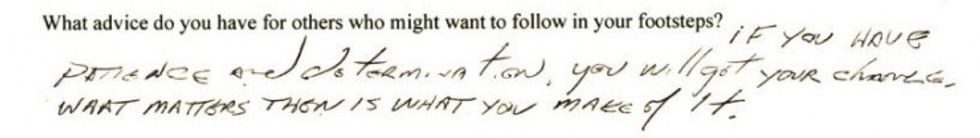 What advice do you have for others who might want to follow in your footsteps? IF YOU HAVE
PATIENCE and determination, you will get your chance.
WHAT MATTERS THEN IS WHAT YOU MAKE of It.